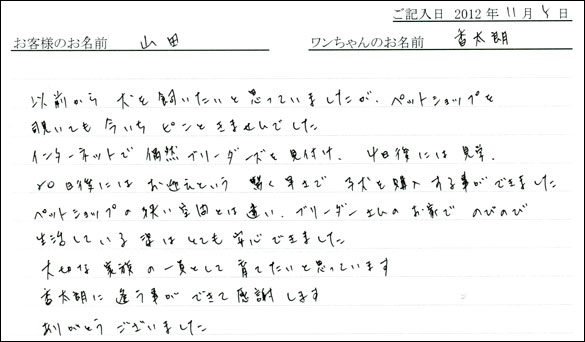 ご記入日 2012 年 11 月 4 日
お客様のお名前 山田 ワンちゃんのお名前 香太朗
以前から 犬を飼いたいと思っていましたが、ペットショップを
覗いても 今いち ピンと きませんでした
インターネットで 偶然 ブリーダーズを見付け、4日後には 見学、
20日後には お迎えという 驚く早さで 子犬を購入する事ができました
ペットショップの狭い空間とは違い、ブリーダーさんのお家で のびのび
生活している 姿は とても 安心できました
大切な 家族の一員として 育てたいと思っています
香太朗に 逢う事が できて感謝します
ありがとう ございました